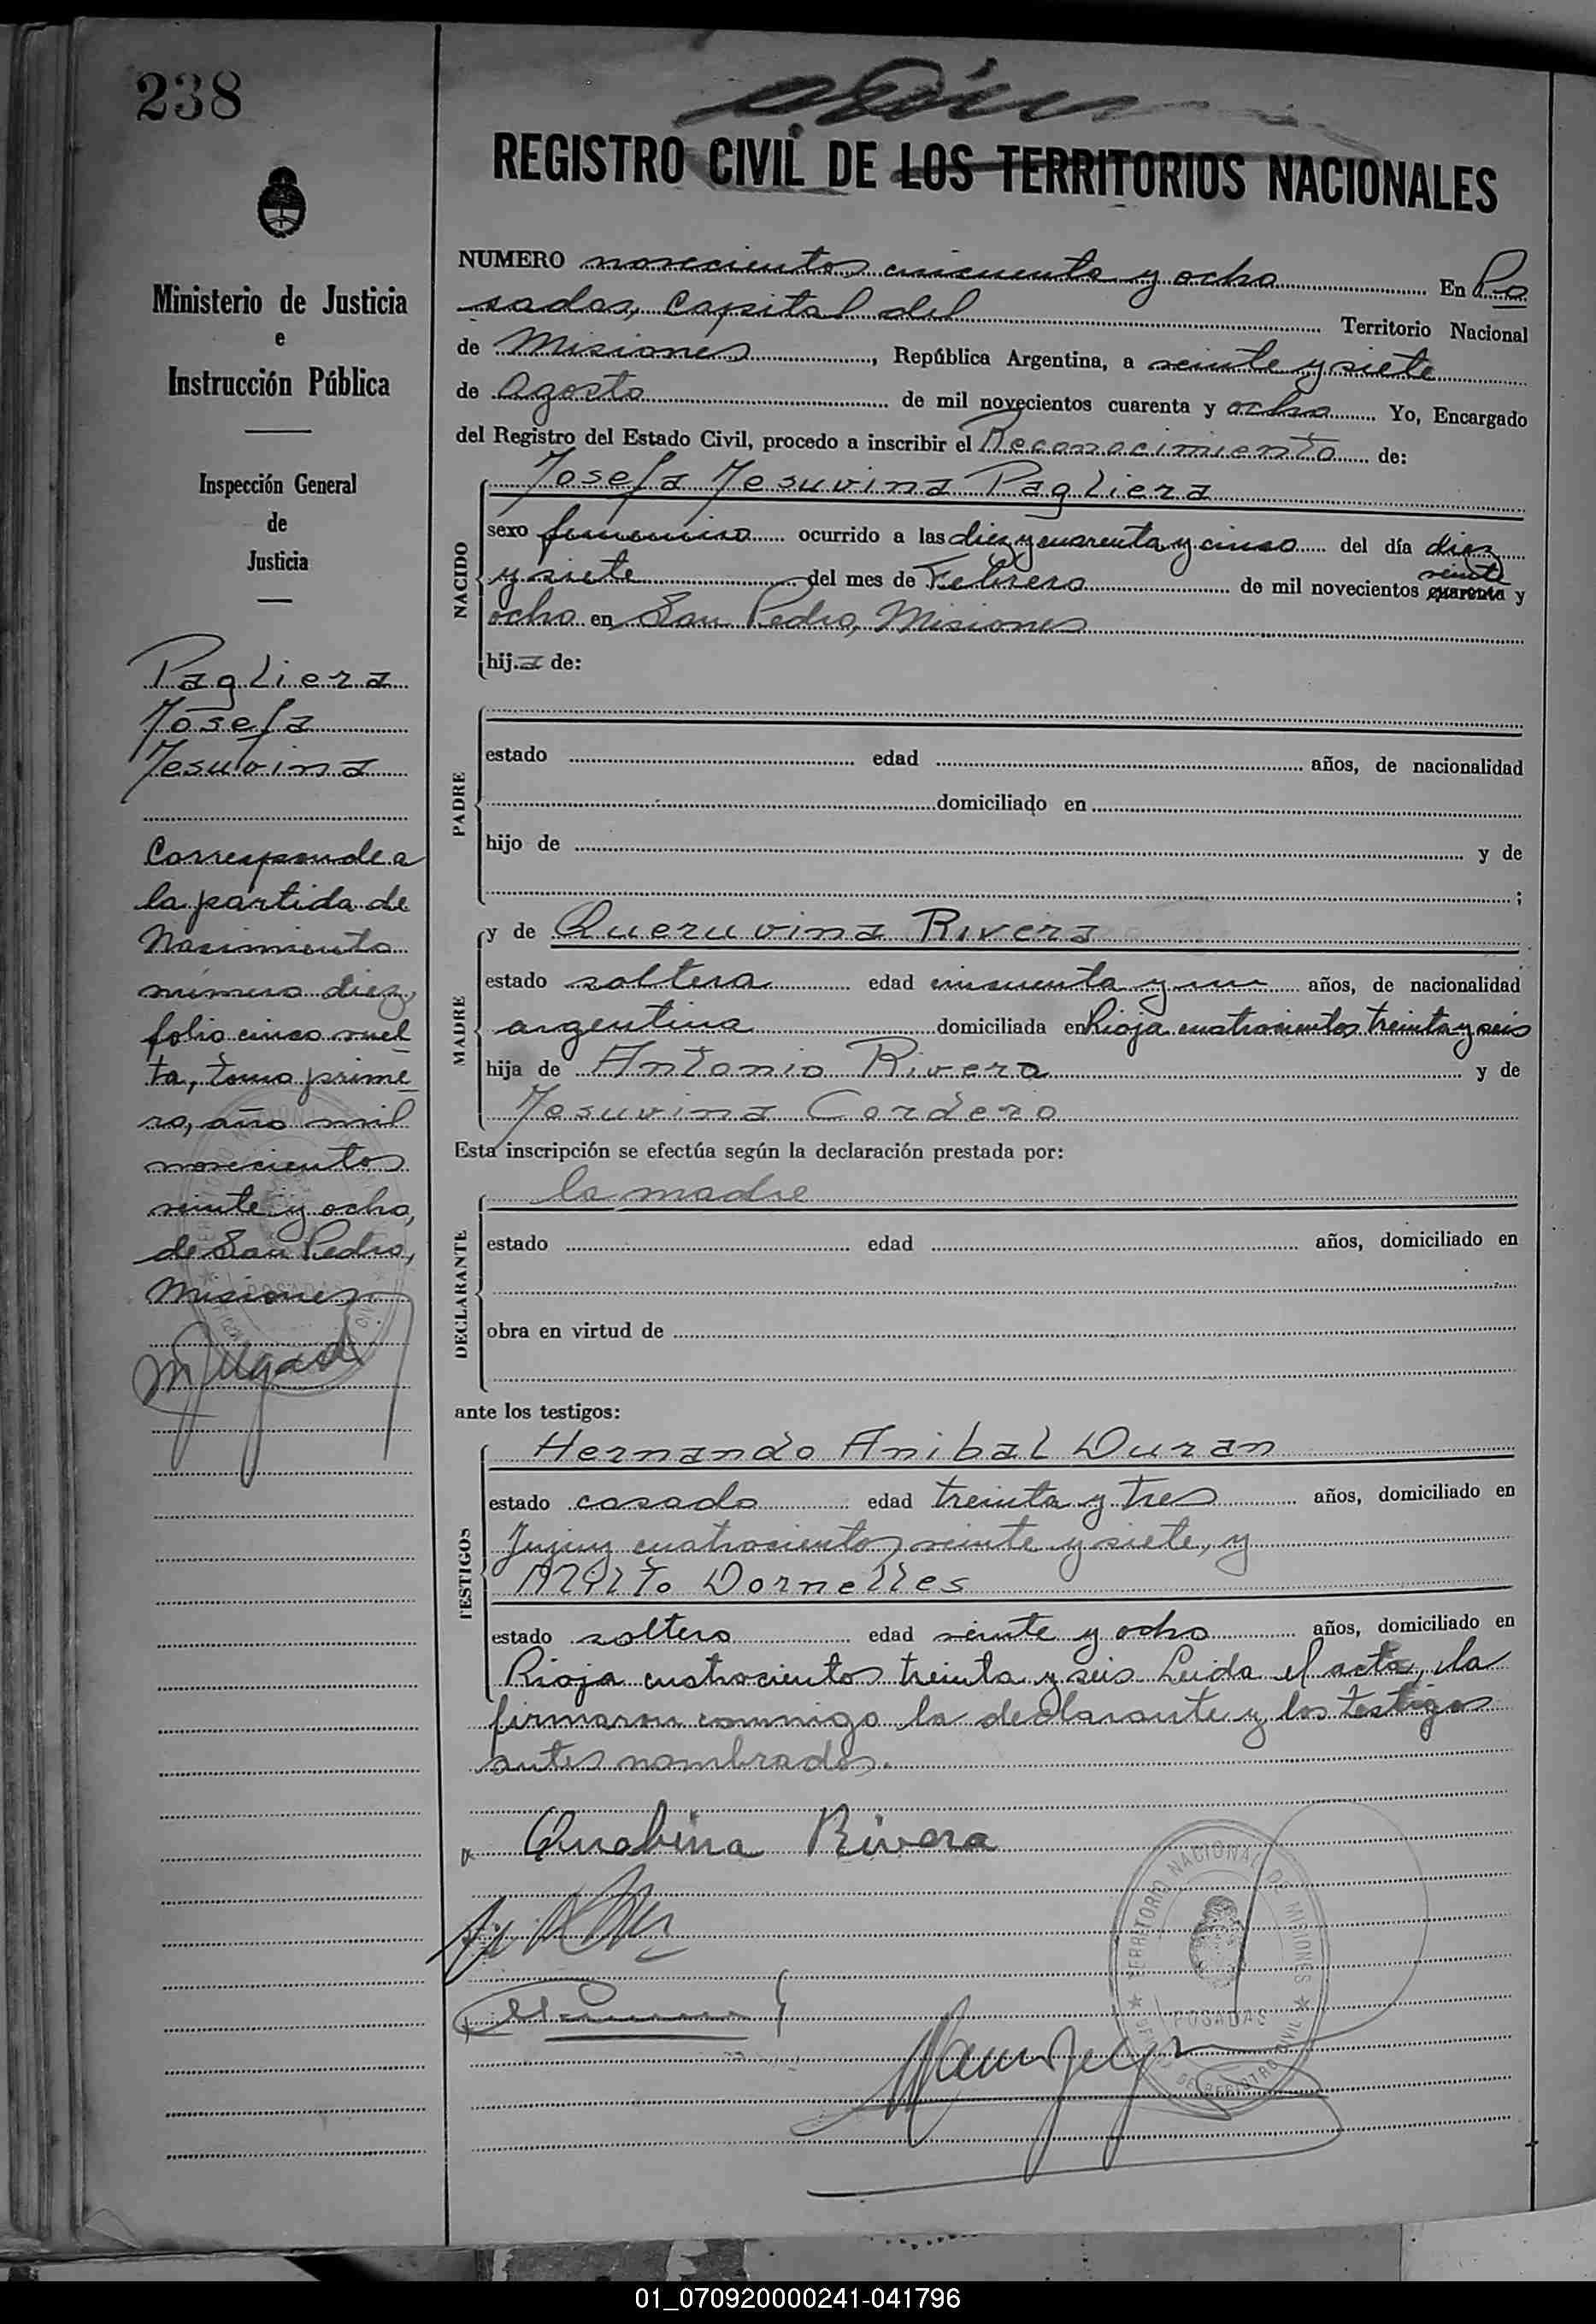 238
REGISTRO CIVIL DE LOS TERRITORIOS NACIONALES
Ministerio de Justicia
e
Instrucción Pública
Inspección General
de
Justicia
Pagliera
Josefa
Jesuvina
Corresponde a
la partida de
Nacimiento
número diez,
folio cinco vuel
ta, tomo prime
ro, año mil
novecientos
veinte y ocho,
de San Pedro,
Misiones
NUMERO novecientos cincuenta y ocho En Po
sadas, Capital del Territorio Nacional
de Misiones, República Argentina, a veinte y siete
de Agosto de mil novecientos cuarenta y ocho Yo, Encargado
del Registro del Estado Civil, procedo a inscribir el Reconocimiento de:
NACIDO
Josefa Jesuvina Pagliera
sexo femenino ocurrido a las diez y cuarenta y cinco del día diez
y siete del mes de Febrero de mil novecientos cuarenta veinte y
ocho en San Pedro, Misiones
hija de:
PADRE
estado edad años, de nacionalidad
domiciliado en
hijo de y de
;
MADRE
y de Queruvina Rivera
estado soltera edad cincuenta y un años, de nacionalidad
argentina domiciliada en Rioja cuatrocientos treinta y seis
hija de Antonio Rivera y de
Jesuvina Cordero
Esta inscripción se efectúa según la declaración prestada por:
DECLARANTE
la madre
estado edad años, domiciliado en
obra en virtud de
ante los testigos:
TESTIGOS
Hernando Anibal Duran
estado casado edad treinta y tres años, domiciliado en
Jujuy cuatrocientos veinte y siete, y
Milto Dornelles
estado soltero edad veinte y ocho años, domiciliado en
Rioja cuatrocientos treinta y seis Leida el acta, la
firmaron conmigo la declarante y los testigos
antes nombrados.
Rivera
TERRITORIO NACIONAL DE MISIONES
POSADAS
REGISTRO CIVIL
01_070920000241-041796